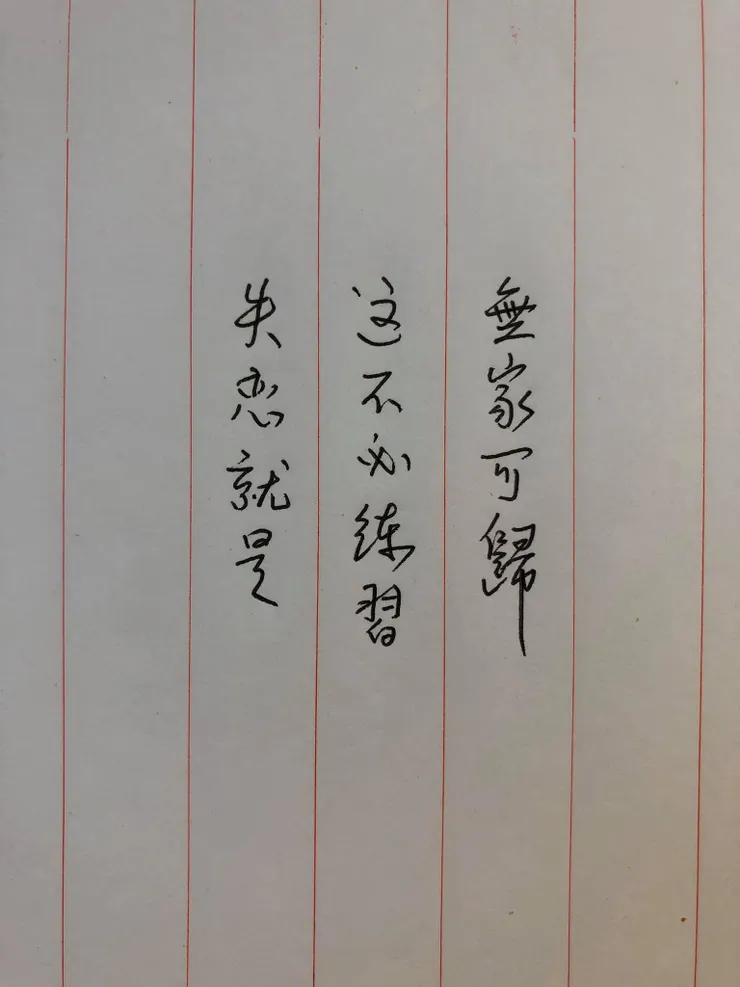 無家可歸
这不必练習
失恋就是